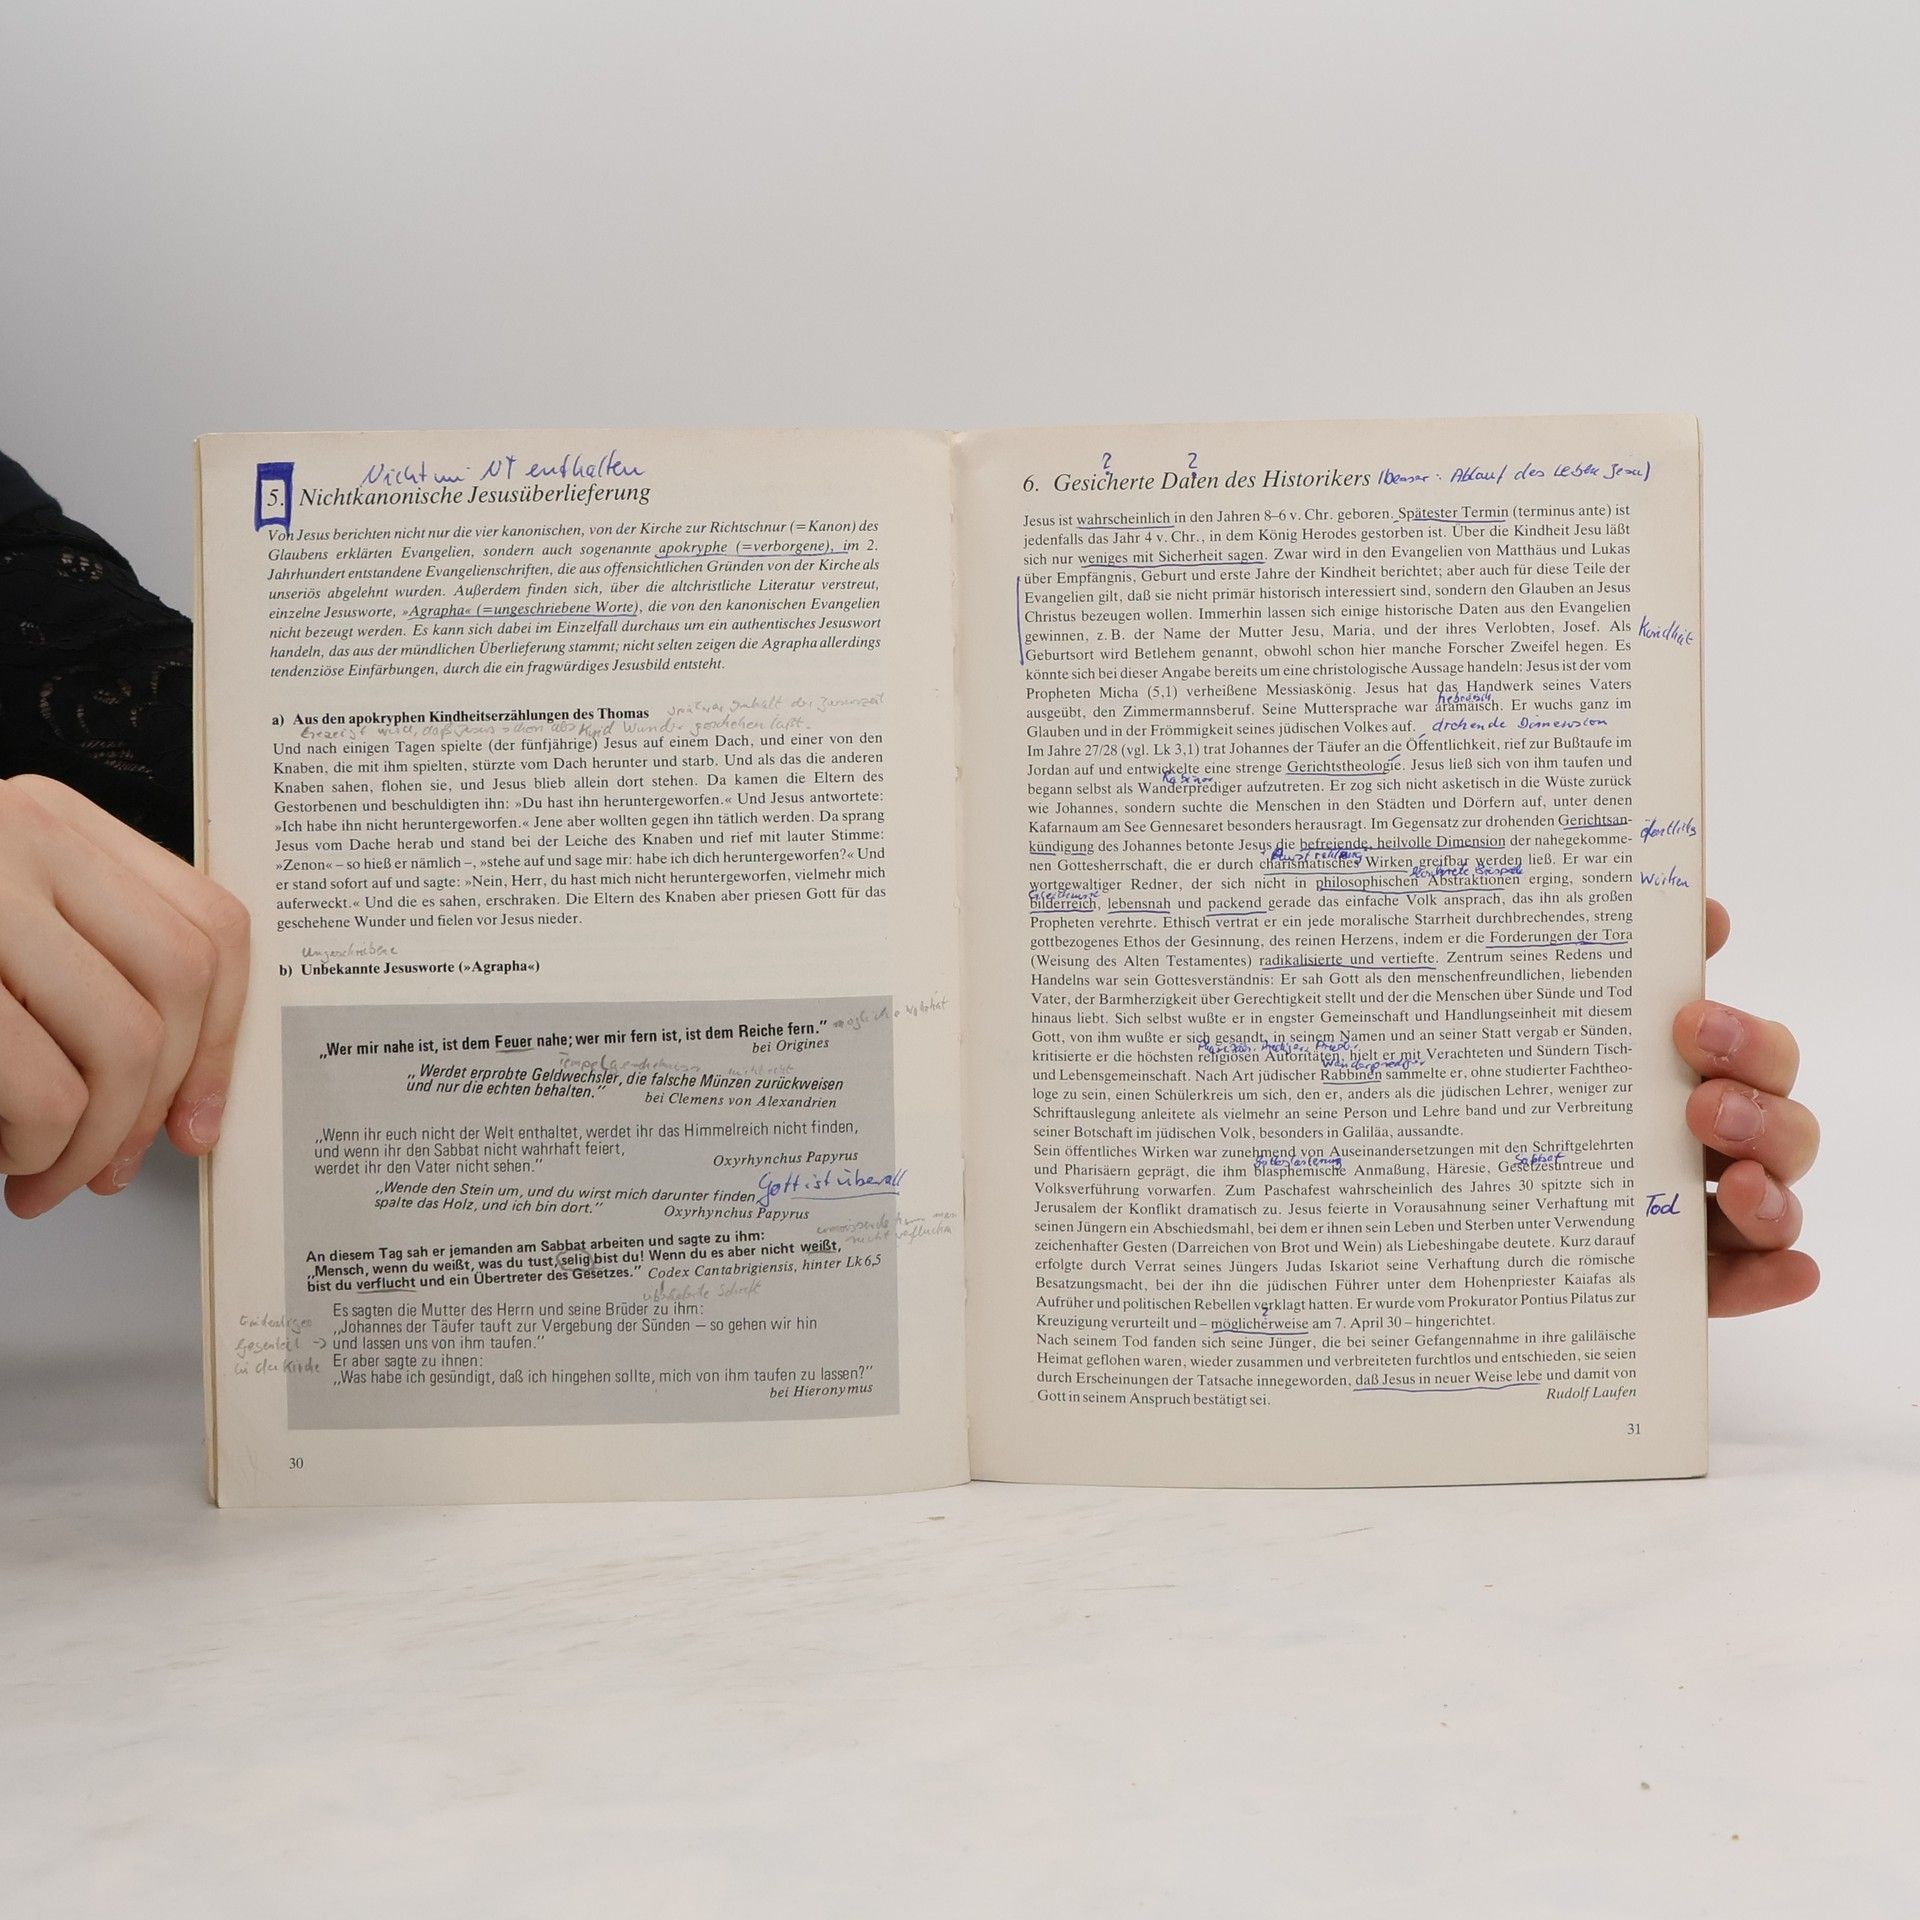 Nicht im NT enthalten
5. Nichtkanonische Jesusüberlieferung
Von Jesus berichten nicht nur die vier kanonischen, von der Kirche zur Richtschnur (=Kanon) des
Glaubens erklärten Evangelien, sondern auch sogenannte apokryphe (=verborgene), im 2.
Jahrhundert entstandene Evangelienschriften, die aus offensichtlichen Gründen von der Kirche als
unseriös abgelehnt wurden. Außerdem finden sich, über die altchristliche Literatur verstreut,
einzelne Jesusworte, »Agrapha« (=ungeschriebene Worte), die von den kanonischen Evangelien
nicht bezeugt werden. Es kann sich dabei im Einzelfall durchaus um ein authentisches Jesuswort
handeln, das aus der mündlichen Überlieferung stammt; nicht selten zeigen die Agrapha allerdings
tendenziöse Einfärbungen, durch die ein fragwürdiges Jesusbild entsteht.
a) Aus den apokryphen Kindheitserzählungen des Thomas
Und nach einigen Tagen spielte (der fünfjährige) Jesus auf einem Dach, und einer von den
Knaben, die mit ihm spielten, stürzte vom Dach herunter und starb. Und als das die anderen
Knaben sahen, flohen sie, und Jesus blieb allein dort stehen. Da kamen die Eltern des
Gestorbenen und beschuldigten ihn: »Du hast ihn heruntergeworfen.« Und Jesus antwortete:
»Ich habe ihn nicht heruntergeworfen.« Jene aber wollten gegen ihn tätlich werden. Da sprang
Jesus vom Dache herab und stand bei der Leiche des Knaben und rief mit lauter Stimme:
»Zenon« – so hieß er nämlich –, »stehe auf und sage mir: habe ich dich heruntergeworfen?« Und
er stand sofort auf und sagte: »Nein, Herr, du hast mich nicht heruntergeworfen, vielmehr mich
auferweckt.« Und die es sahen, erschraken. Die Eltern des Knaben aber priesen Gott für das
geschehene Wunder und fielen vor Jesus nieder.
Ungeschriebene
b) Unbekannte Jesusworte (»Agrapha«)
„Wer mir nahe ist, ist dem Feuer nahe; wer mir fern ist, ist dem Reiche fern.”
bei Origines
„Werdet erprobte Geldwechsler, die falsche Münzen zurückweisen
und nur die echten behalten.”
bei Clemens von Alexandrien
„Wenn ihr euch nicht der Welt enthaltet, werdet ihr das Himmelreich nicht finden,
und wenn ihr den Sabbat nicht wahrhaft feiert,
werdet ihr den Vater nicht sehen.”
Oxyrhynchus Papyrus
„Wende den Stein um, und du wirst mich darunter finden Gott ist überall
spalte das Holz, und ich bin dort.”
Oxyrhynchus Papyrus
An diesem Tag sah er jemanden am Sabbat arbeiten und sagte zu ihm:
„Mensch, wenn du weißt, was du tust, selig bist du! Wenn du es aber nicht weißt,
bist du verflucht und ein Übertreter des Gesetzes.” Codex Cantabrigiensis, hinter Lk 6,5
Es sagten die Mutter des Herrn und seine Brüder zu ihm:
„Johannes der Täufer tauft zur Vergebung der Sünden – so gehen wir hin
und lassen uns von ihm taufen.”
Er aber sagte zu ihnen:
„Was habe ich gesündigt, daß ich hingehen sollte, mich von ihm taufen zu lassen?”
bei Hieronymus
in der Kirche
30
? ?
6. Gesicherte Daten des Historikers (besser: Ablauf des Leben Jesu)
Jesus ist wahrscheinlich in den Jahren 8–6 v. Chr. geboren. Spätester Termin (terminus ante) ist
jedenfalls das Jahr 4 v. Chr., in dem König Herodes gestorben ist. Über die Kindheit Jesu läßt
sich nur weniges mit Sicherheit sagen. Zwar wird in den Evangelien von Matthäus und Lukas
über Empfängnis, Geburt und erste Jahre der Kindheit berichtet; aber auch für diese Teile der
Evangelien gilt, daß sie nicht primär historisch interessiert sind, sondern den Glauben an Jesus
Christus bezeugen wollen. Immerhin lassen sich einige historische Daten aus den Evangelien
gewinnen, z. B. der Name der Mutter Jesu, Maria, und der ihres Verlobten, Josef. Als
Kindheit
Geburtsort wird Betlehem genannt, obwohl schon hier manche Forscher Zweifel hegen. Es
könnte sich bei dieser Angabe bereits um eine christologische Aussage handeln: Jesus ist der vom
Propheten Micha (5,1) verheißene Messiaskönig. Jesus hat das Handwerk seines Vaters
hebräisch
ausgeübt, den Zimmermannsberuf. Seine Muttersprache war aramäisch. Er wuchs ganz im
Glauben und in der Frömmigkeit seines jüdischen Volkes auf. drohende Dimension
Im Jahre 27/28 (vgl. Lk 3,1) trat Johannes der Täufer an die Öffentlichkeit, rief zur Bußtaufe im
Jordan auf und entwickelte eine strenge Gerichtstheologie. Jesus ließ sich von ihm taufen und
Rabbiner
begann selbst als Wanderprediger aufzutreten. Er zog sich nicht asketisch in die Wüste zurück
wie Johannes, sondern suchte die Menschen in den Städten und Dörfern auf, unter denen
Kafarnaum am See Gennesaret besonders herausragt. Im Gegensatz zur drohenden Gerichtsan-
kündigung des Johannes betonte Jesus die befreiende, heilvolle Dimension der nahegekomme-
Ausstrahlung
nen Gottesherrschaft, die er durch charismatisches Wirken greifbar werden ließ. Er war ein
konkrete Beispiele
wortgewaltiger Redner, der sich nicht in philosophischen Abstraktionen erging, sondern
Wirken
Gleichnisse
bilderreich, lebensnah und packend gerade das einfache Volk ansprach, das ihn als großen
Propheten verehrte. Ethisch vertrat er ein jede moralische Starrheit durchbrechendes, streng
gottbezogenes Ethos der Gesinnung, des reinen Herzens, indem er die Forderungen der Tora
(Weisung des Alten Testamentes) radikalisierte und vertiefte. Zentrum seines Redens und
Handelns war sein Gottesverständnis: Er sah Gott als den menschenfreundlichen, liebenden
Vater, der Barmherzigkeit über Gerechtigkeit stellt und der die Menschen über Sünde und Tod
hinaus liebt. Sich selbst wußte er in engster Gemeinschaft und Handlungseinheit mit diesem
Gott, von ihm wußte er sich gesandt, in seinem Namen und an seiner Statt vergab er Sünden,
kritisierte er die höchsten religiösen Autoritäten, hielt er mit Verachteten und Sündern Tisch-
Wanderprediger
und Lebensgemeinschaft. Nach Art jüdischer Rabbinen sammelte er, ohne studierter Fachtheo-
loge zu sein, einen Schülerkreis um sich, den er, anders als die jüdischen Lehrer, weniger zur
Schriftauslegung anleitete als vielmehr an seine Person und Lehre band und zur Verbreitung
seiner Botschaft im jüdischen Volk, besonders in Galiläa, aussandte.
Sein öffentliches Wirken war zunehmend von Auseinandersetzungen mit den Schriftgelehrten
Gotteslästerung Sabbat
und Pharisäern geprägt, die ihm blasphemische Anmaßung, Häresie, Gesetzesuntreue und
Volksverführung vorwarfen. Zum Paschafest wahrscheinlich des Jahres 30 spitzte sich in
Jerusalem der Konflikt dramatisch zu. Jesus feierte in Vorausahnung seiner Verhaftung mit
Tod
seinen Jüngern ein Abschiedsmahl, bei dem er ihnen sein Leben und Sterben unter Verwendung
zeichenhafter Gesten (Darreichen von Brot und Wein) als Liebeshingabe deutete. Kurz darauf
erfolgte durch Verrat seines Jüngers Judas Iskariot seine Verhaftung durch die römische
Besatzungsmacht, bei der ihn die jüdischen Führer unter dem Hohenpriester Kaiafas als
Aufrührer und politischen Rebellen verklagt hatten. Er wurde vom Prokurator Pontius Pilatus zur
?
Kreuzigung verurteilt und – möglicherweise am 7. April 30 – hingerichtet.
Nach seinem Tod fanden sich seine Jünger, die bei seiner Gefangennahme in ihre galiläische
Heimat geflohen waren, wieder zusammen und verbreiteten furchtlos und entschieden, sie seien
durch Erscheinungen der Tatsache innegeworden, daß Jesus in neuer Weise lebe und damit von
Gott in seinem Anspruch bestätigt sei.
Rudolf Laufen
31